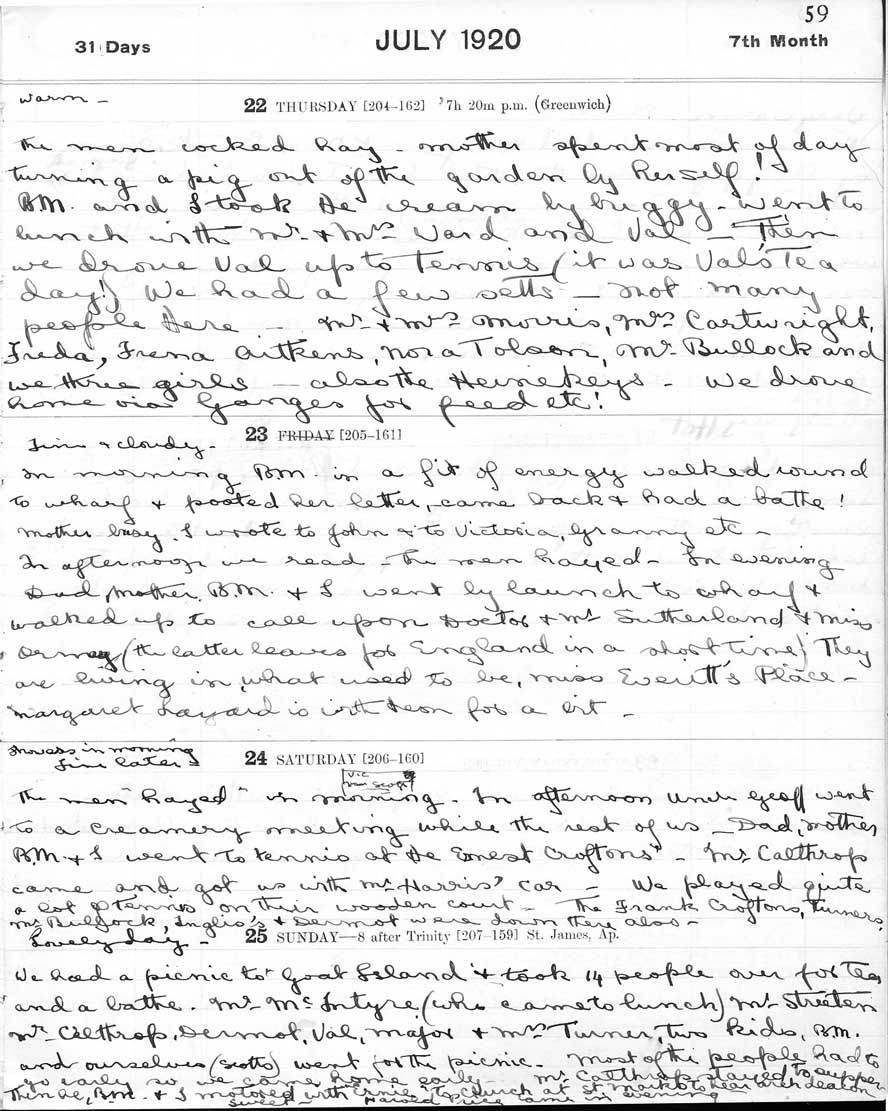 59
31 Days JULY 1920 7th Month
warm –
22 THURSDAY [204–162] 7h 20m p.m. (Greenwich)
The men cocked hay – mother spent most of day
turning a pig out of the garden by herself!
B.M. and I took the cream by buggy – went to
lunch with Mr. & Mrs Ward and Val – Then
we drove Val up to Tennis (it was Val's Tea
day!) We had a few setts – not many
people there – Mr. & Mrs. Morris, Mrs Cartwright,
Freda, Frena Aitkens, Nora Tolson, Mr. Bullock and
we three girls – also the Heinekeys – We drove
home via Ganges for feed etc!
23 FRIDAY [205–161]
Fine & cloudy –
In morning B.M. in a fit of energy walked round
to wharf & posted her letter, came back & had a bathe!
Mother busy. I wrote to John & to Victoria, Granny etc –
In afternoon we read – The men hayed – In evening
Dad, Mother, B.M. & I went by launch to wharf &
walked up to call upon Doctor & Mrs Sutherland & Miss
(the latter leaves for England in a short time) They
are living in, what used to be, Miss Everett's Place –
Margaret Layard is with them for a bit –
Showers in morning
Fine later –
24 SATURDAY [206–160]
Vic
The men "hayed" in morning. In afternoon Uncle Geoff went
to a creamery meeting while the rest of us – Dad, Mother,
B.M. & I went to tennis at the Ernest Croftons' – Mr. Calthrop
came and got us with Mr. Harris' car – We played quite
a lot of tennis on their wooden court – The Frank Croftons, Turners,
Mr. Bullock, Inglis's & Dermot were down there also –
Lovely day –
25 SUNDAY—8 after Trinity [207–159] St. James, Ap.
We had a picnic to Goat Island & took 14 people over for tea
and a bathe. Mr. McIntyre, (who came to lunch) Mr. Streeten
Mr. Calthrop, Dermot, Val, Major & Mrs Turner, two kids, B.M.
and ourselves (Scotts) went for the picnic. Most of the people had to
go early so we came home early – Mr. Calthrop stayed to supper
Then he, B.M. & I motored with Ernie to Church at St Marks to hear Archdeacon
in evening